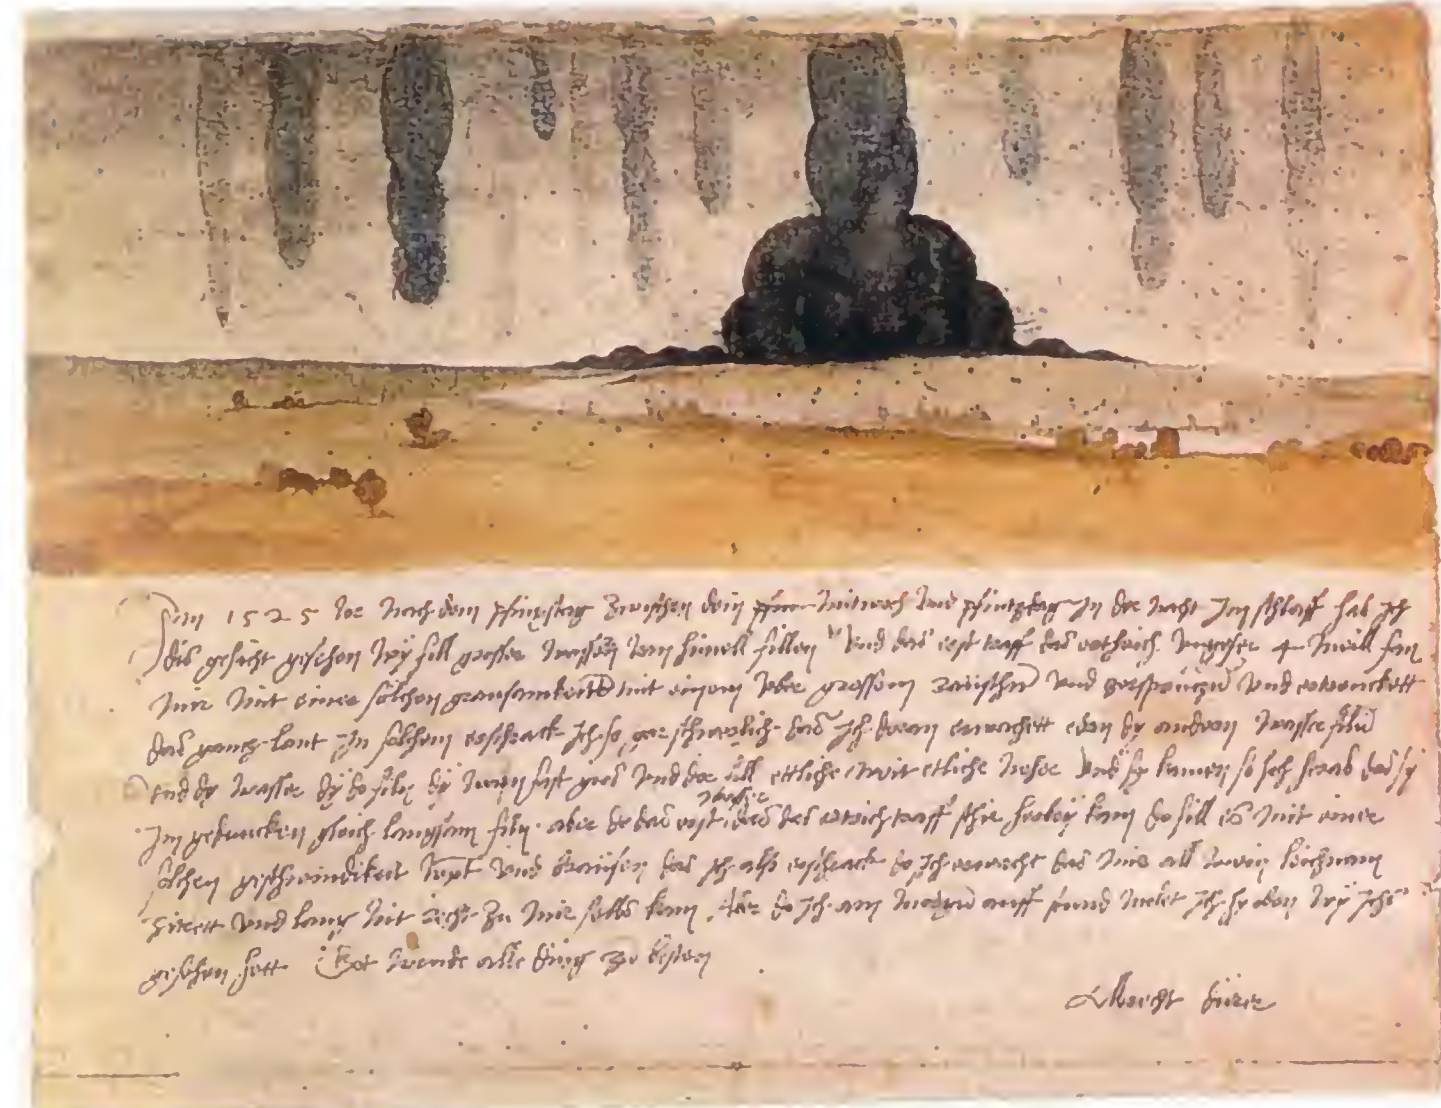 Im 1525 Jor nach dem pfinxstag zwischen dem mitwoch und pfintzdag in der nacht im schlaff hab ich
dis gesicht gesehen wy fill grosser wassern vom himell fillen Und das erst traff das erthrich ungefer 4 meill fan
mir mit einer solchen grausamkeitt mit einem uber grossem raüschn und zersprützn und ertrenckett
das gantz lant In solchem erschrack ich so gar schwerlich das ich doran erwachett edan dy andern wasser filn
Und dy wasser dy do filn dy warn fast gros und der fill ettliche weit etliche neher und sy kamen so hoch herab das sy
im gedancken gleich langsam filn aber do das erst wasser das das ertrich traff schir herbey kam do fill es mit einer
solchen geschwindikeit wynt und braüsen das ich also erschrack do ich erwacht das mir all mein leichnam
zitrett und lang nit recht zu mir selbs kam Aber do ich am morgn auff stund molet ich hy oben wy ichs
gesehen hett Got wende alle ding zu besten
Albrecht dürer